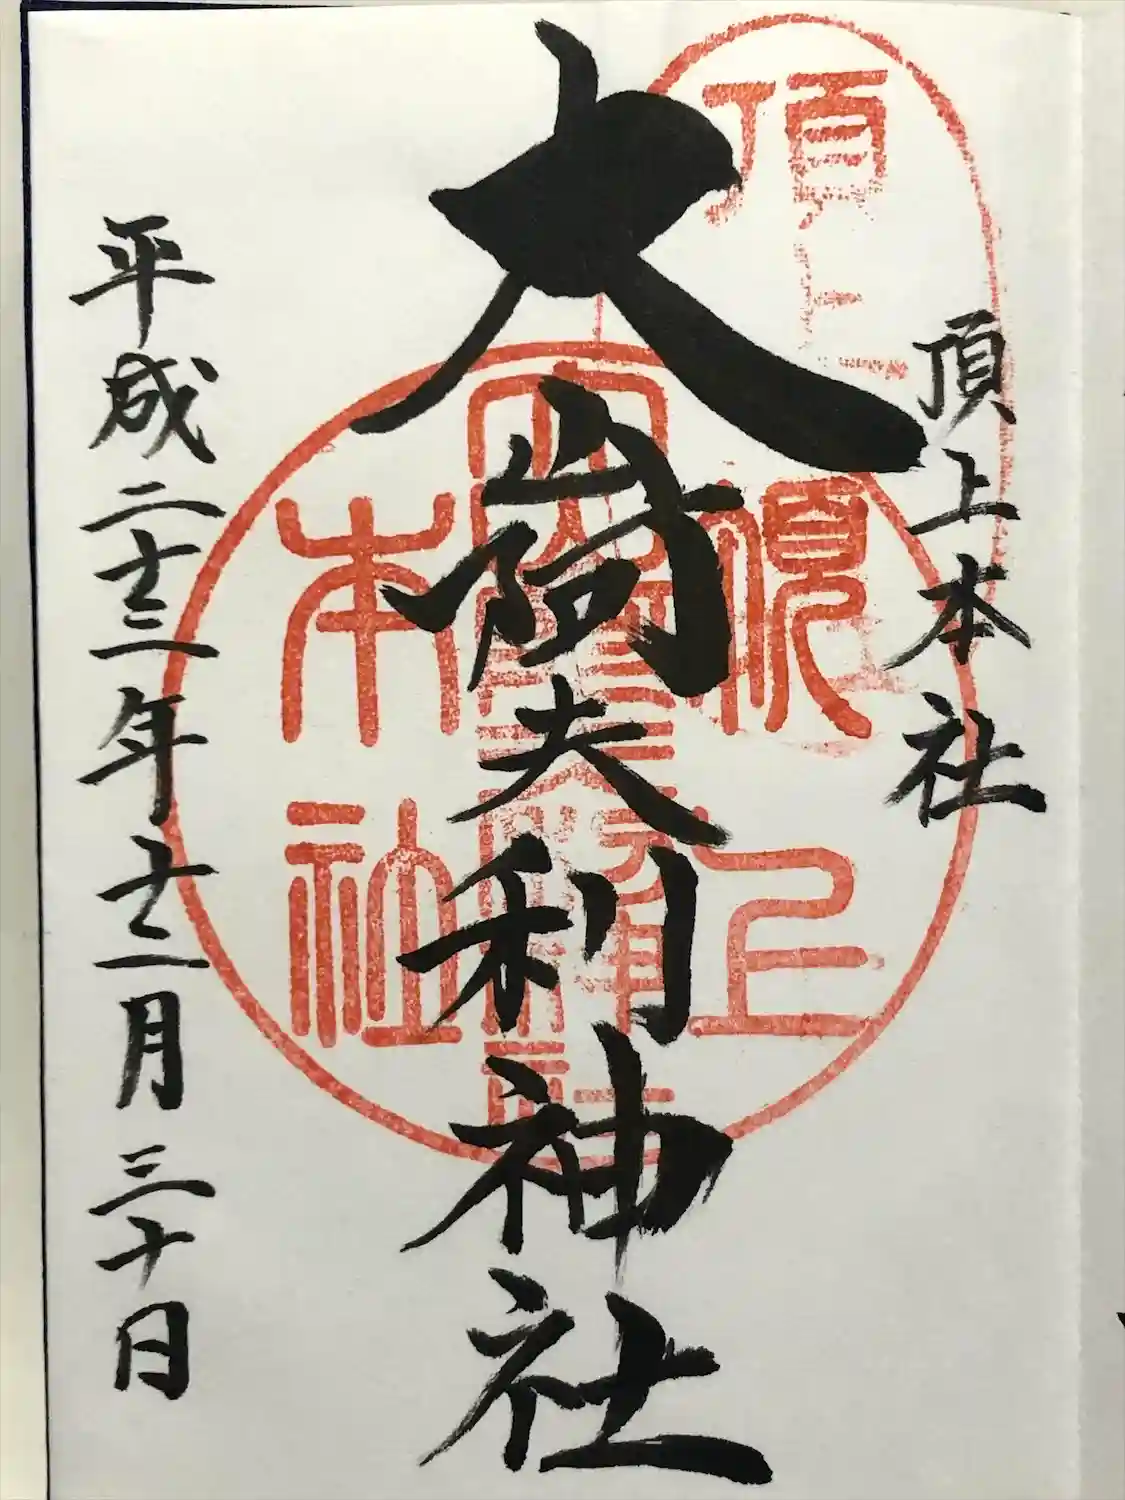 頂上本社
大山阿夫利神社
平成二十三年十二月三十日
頂上
頂上
本社